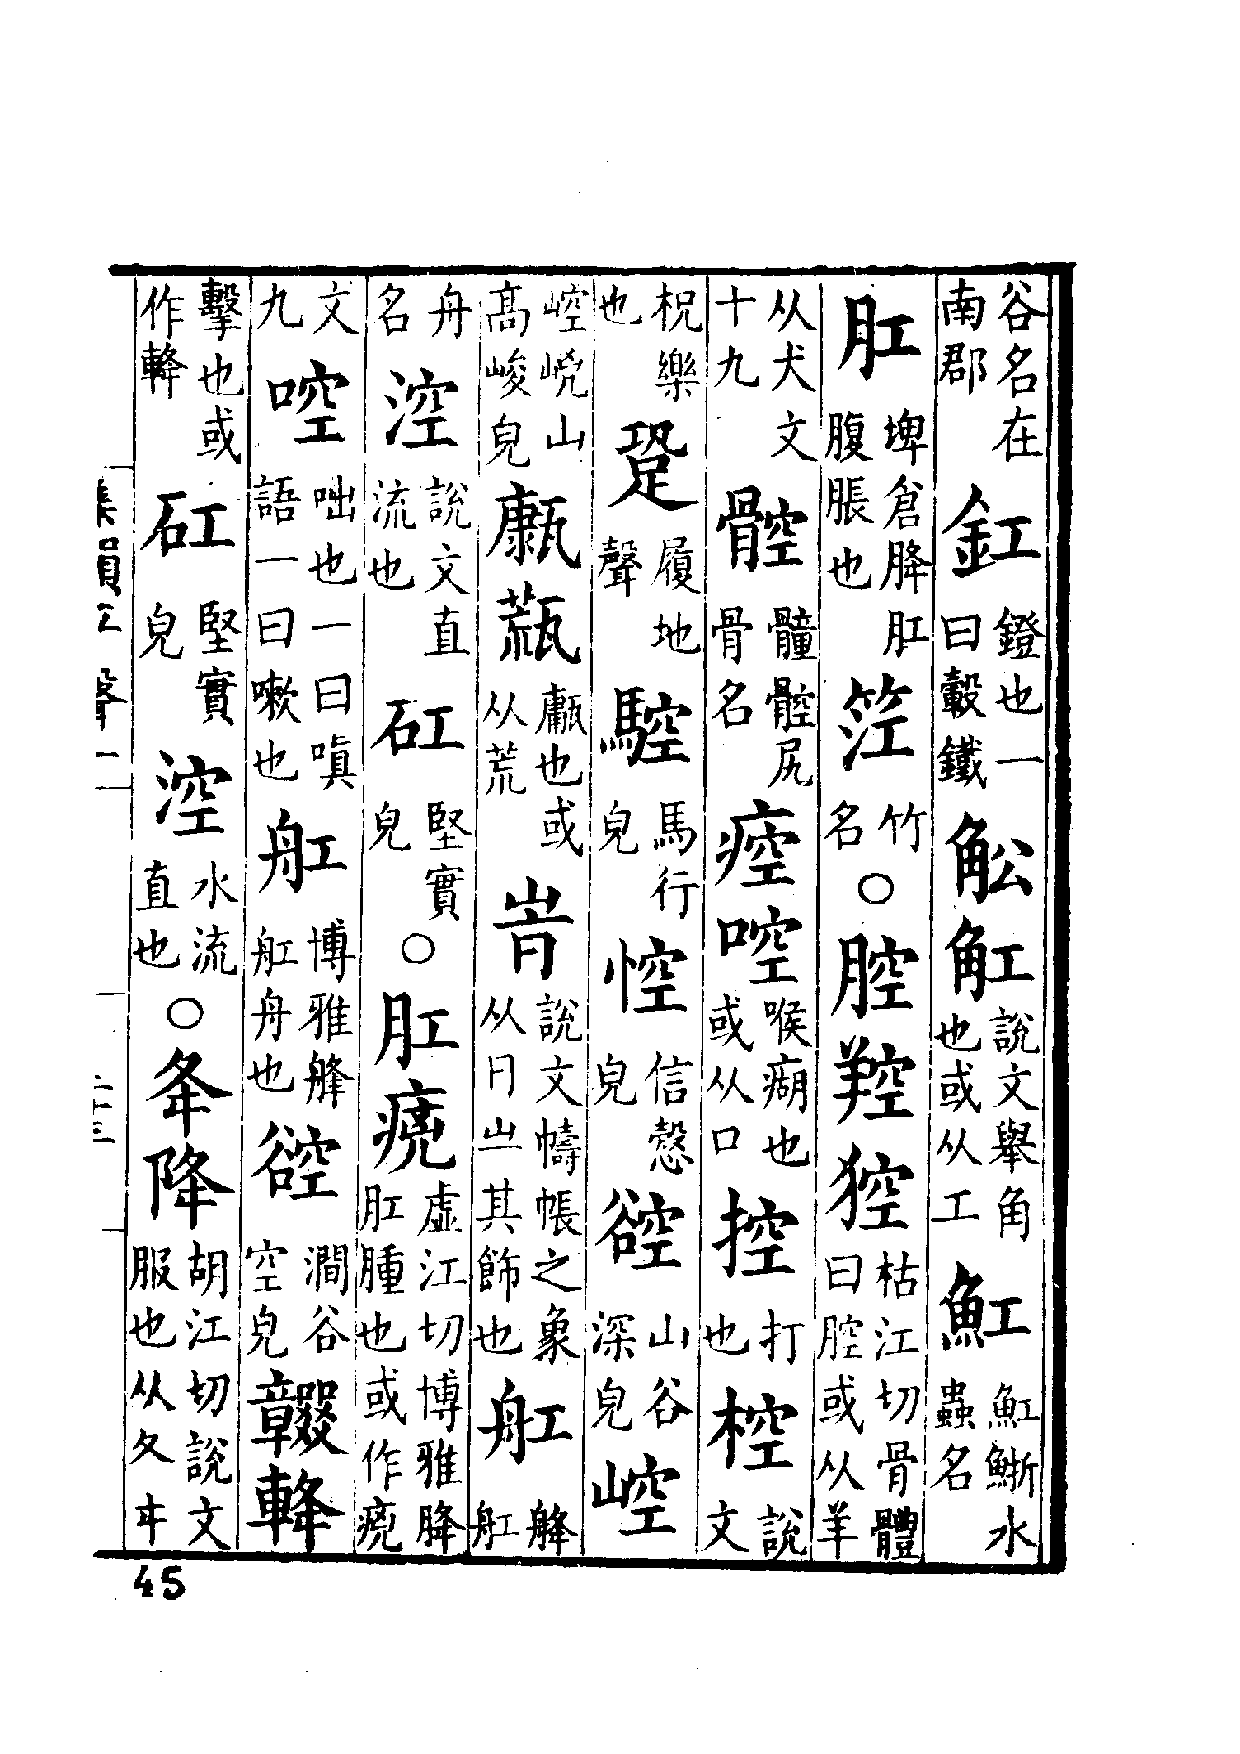 谷名在南郡 釭 鐙也一曰轂鐵 䚗 𧣍 說文舉角也或从工 魟 魟鯯水蟲名
肛 埤倉胮肛腹脹也 䇨 竹名 ○ 腔 羫 㹇 枯江切骨體曰腔或从羊
从犬文十九 䯊 髓䯊尻骨名 㾤 啌 喉㾰也或从口 控 打也 椌 說文
柷樂也 跫 履地聲 䮚 馬行皃 悾 信愨皃 谾 山谷深皃 崆
崆㟅山高峻皃 㼹 㼹也或从荒 𡴑 說文幬帳之象从冃㞢其飾也 舡 舽舡
舟名 涳 說文直流也 矼 堅實皃 ○ 肛 𤶼 虛江切博雅胮肛腫也或作𤶼
文九 啌 咄也一曰嗔語一曰嗽也 舡 博雅舽舡舟也 谾 澗谷空皃 𨍏
擊也或作𨍏 矼 堅實皃 涳 水流直也 ○ 夅 降 胡江切說文服也从夊㐄
集韻平聲一
二十三
45